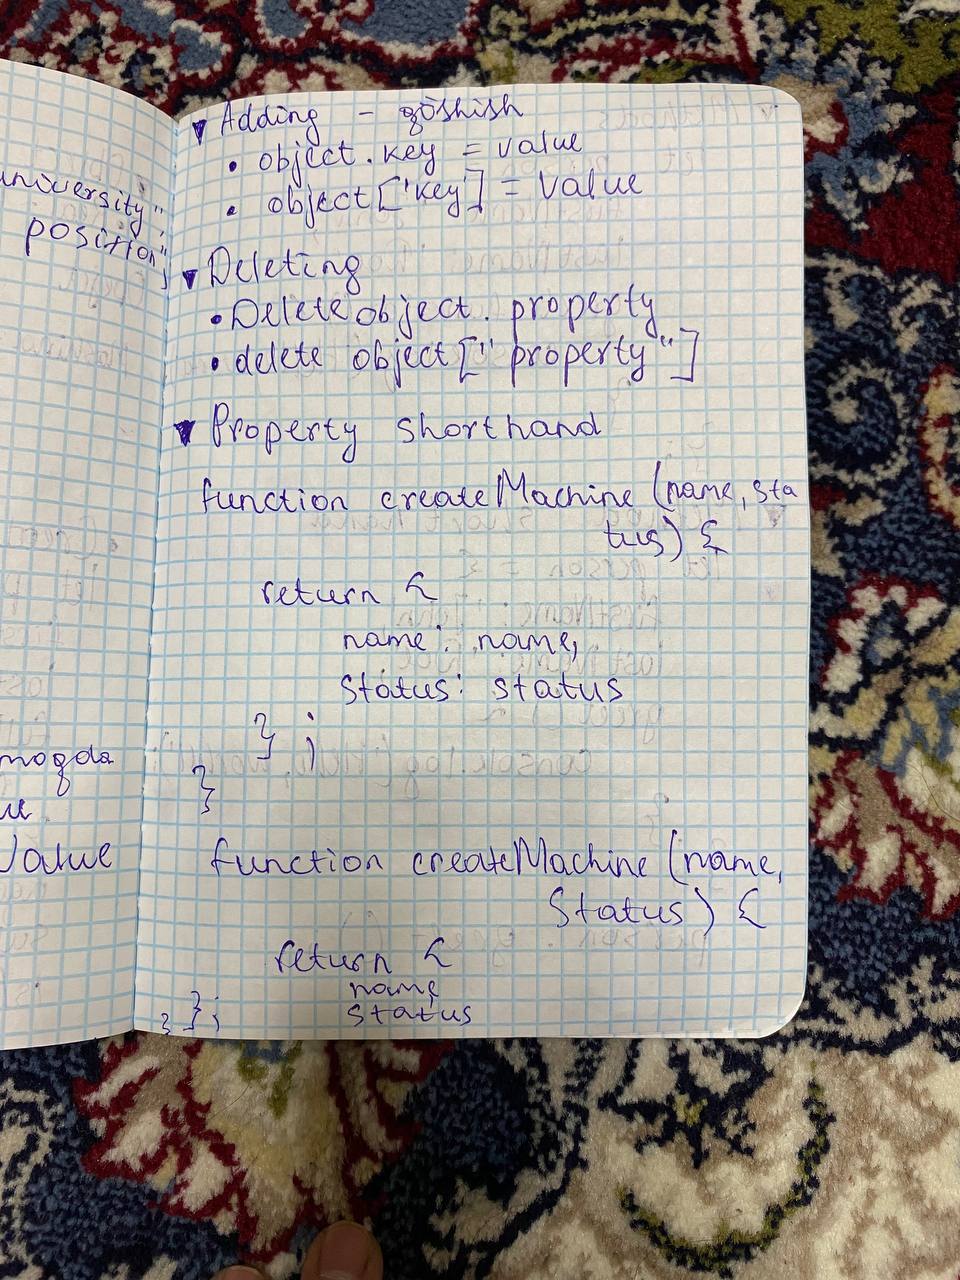 university",
position"]
moqda
u
Value
▼ Adding - qo'shish
• object.key = value
• object['key'] = value
▼ Deleting
• Delete object.property
• delete object["property"]
▼ Property shorthand
function createMachine (name, sta
tus) {
return {
name: name,
status: status
} ;
}
function createMachine (name,
status) {
return {
name
status
} };